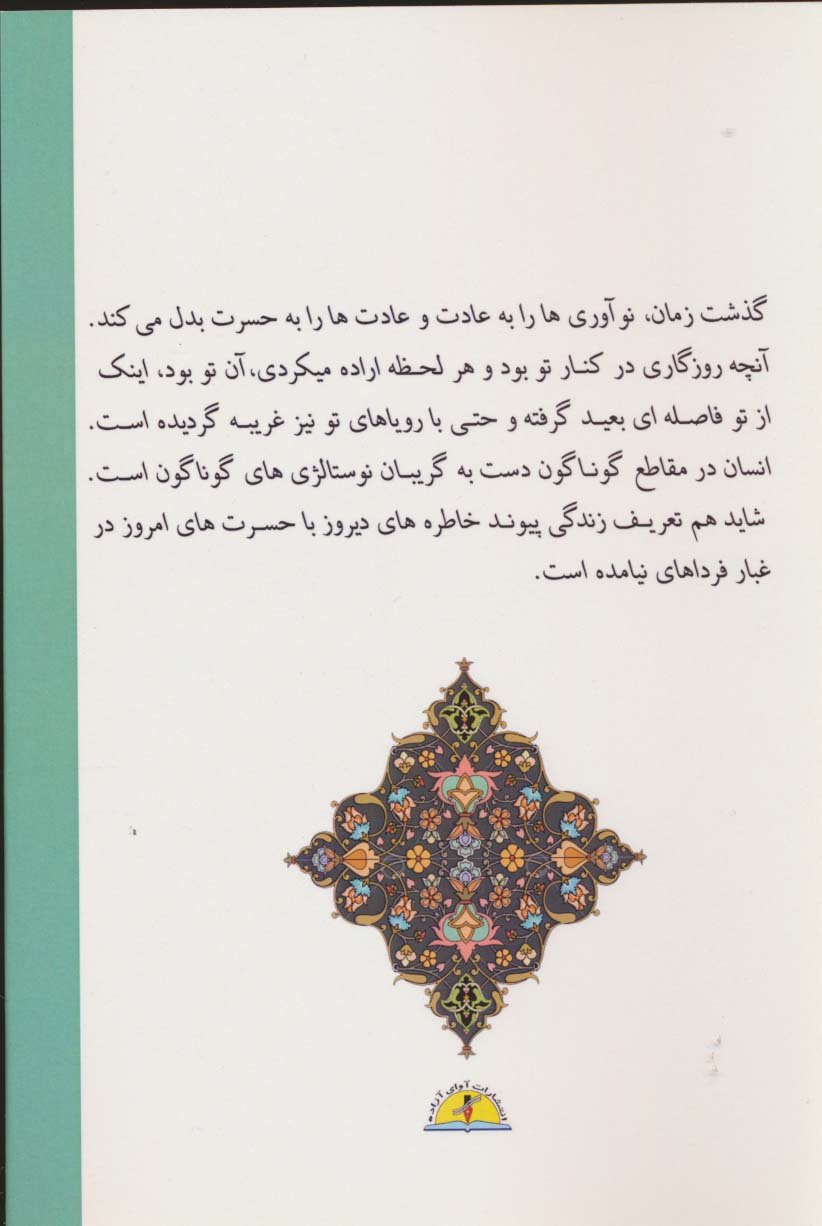 گذشت زمان، نوآوری ها را به عادت و عادت ها را به حسرت بدل می کند.
آنچه روزگاری در کنار تو بود و هر لحظه اراده میکردی،آن تو بود، اینک
از تو فاصله ای بعید گرفته و حتی با رویاهای تو نیز غریبه گردیده است.
انسان در مقاطع گوناگون دست به گریبان نوستالژی های گوناگون است.
شاید هم تعریف زندگی پیوند خاطره های دیروز با حسرت های امروز در
غبار فرداهای نیامده است.
انتشارات آوای آزاده